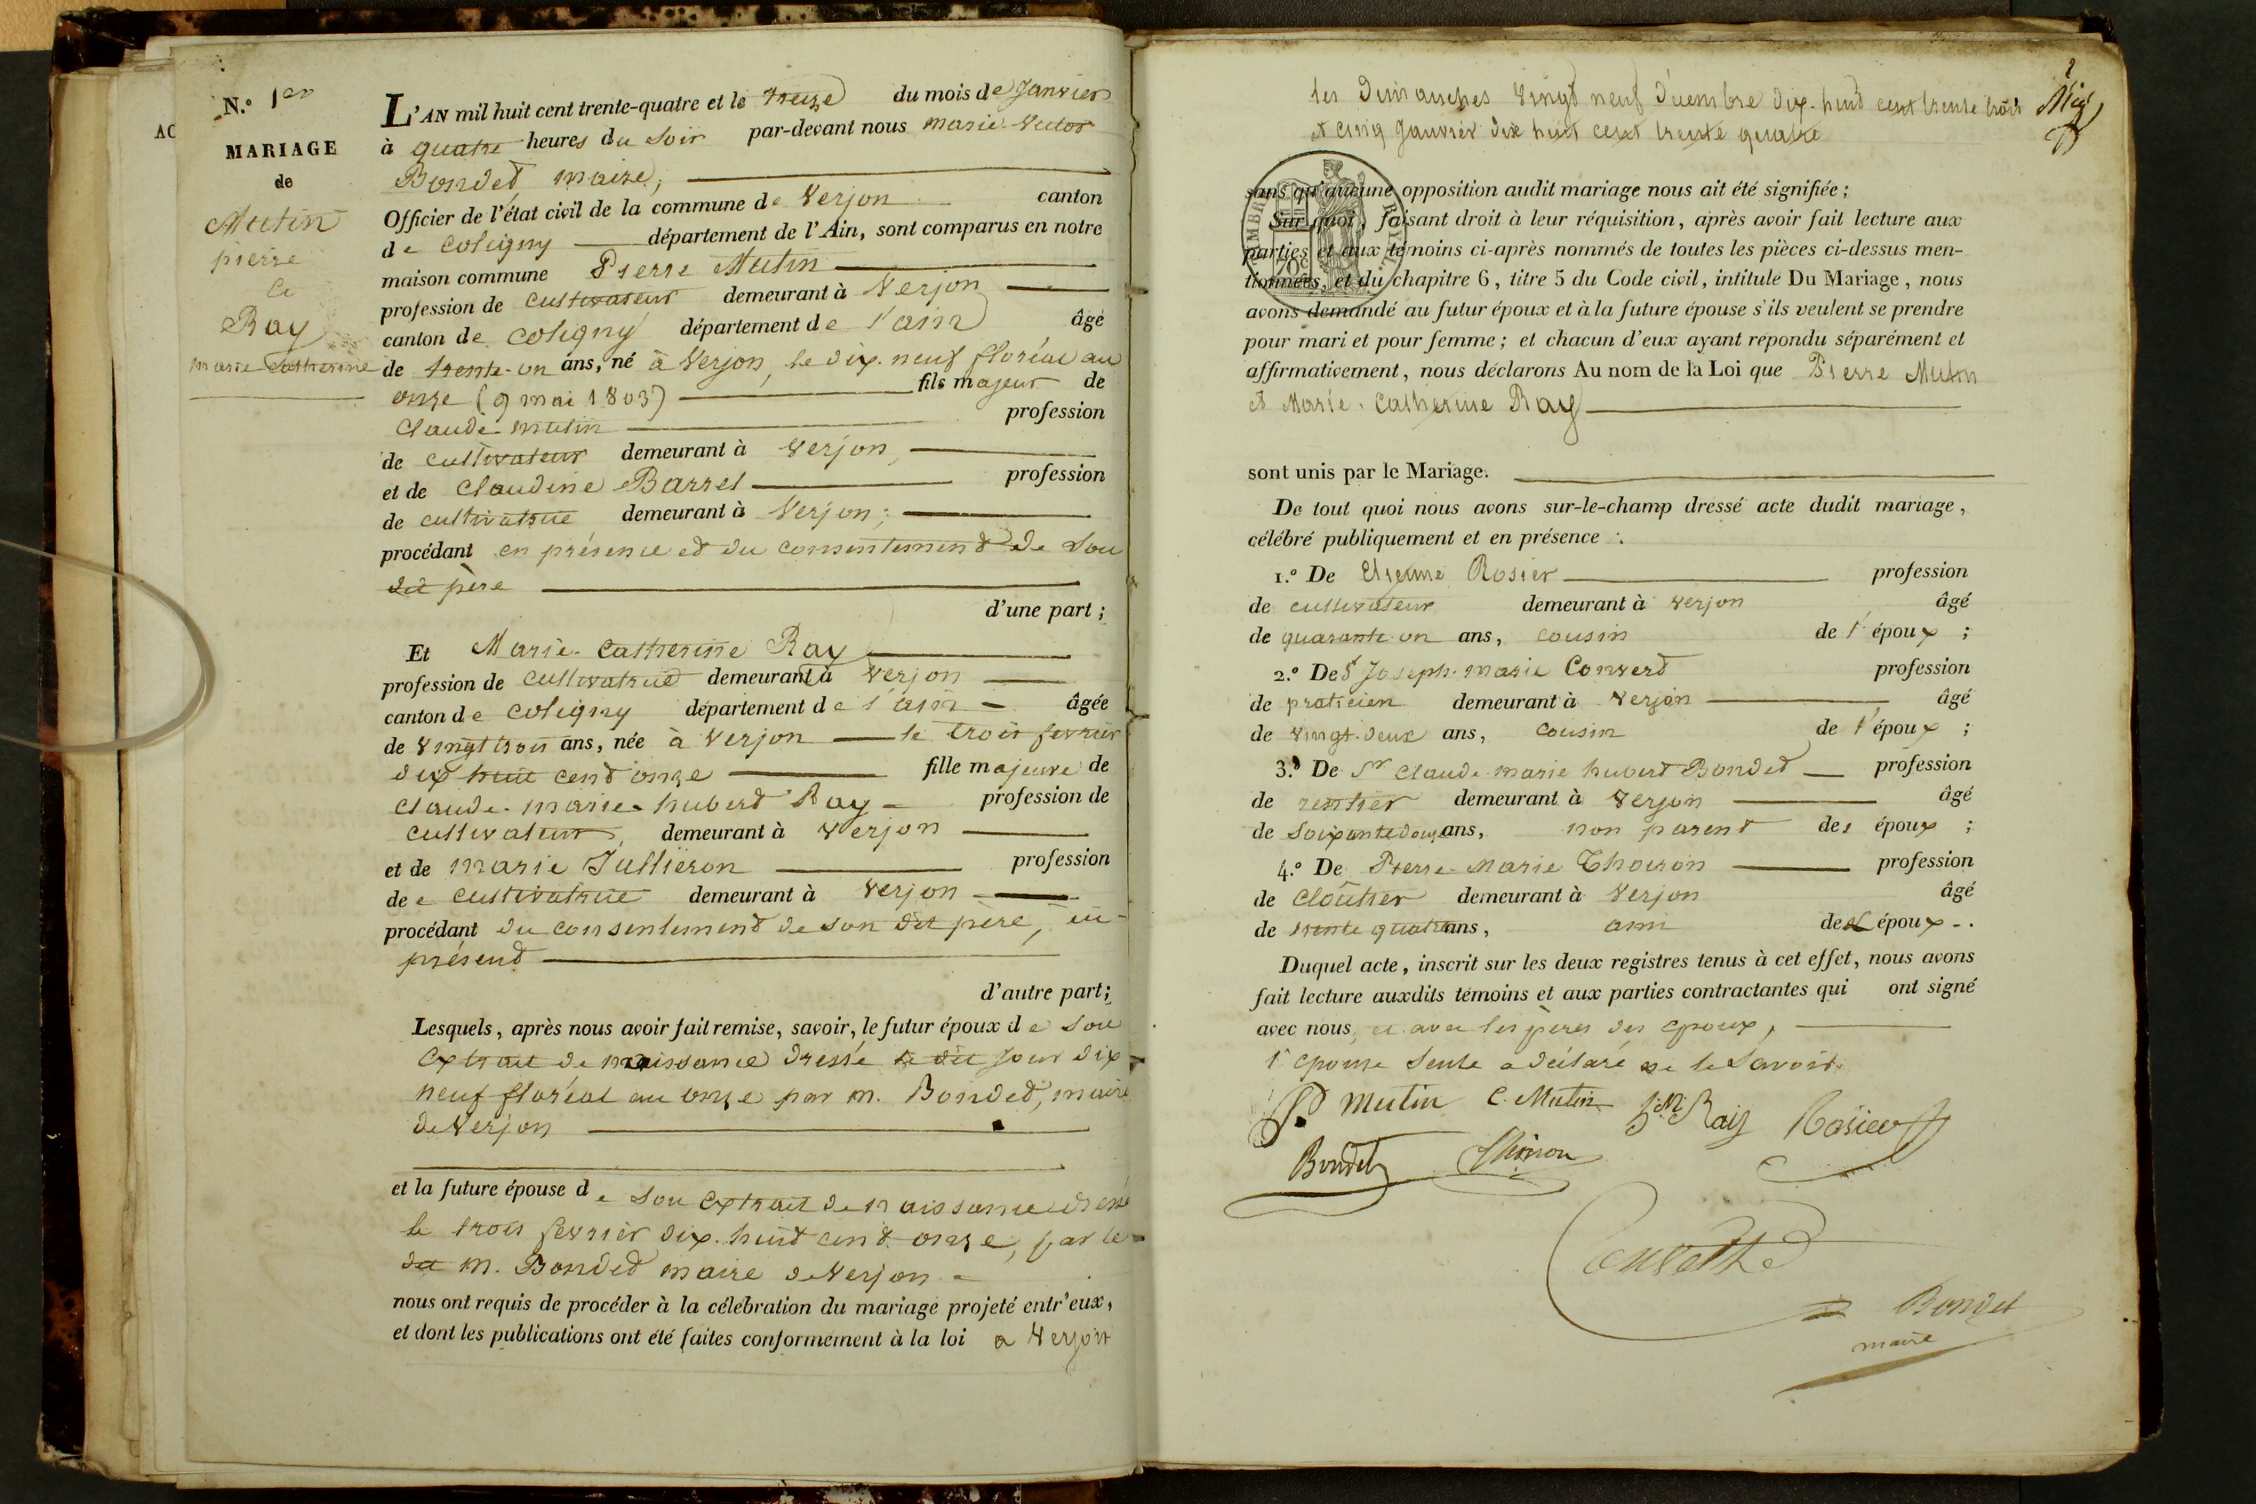 N.º 1er
MARIAGE
de
Mutin
pierre
Ce
Ray
marie Catherine
AC
L'AN mil huit cent trente-quatre et le treize du mois de Janvier
à quatre heures du Soir par-devant nous marie-Victor
Bondet, maire,
Officier de l'état civil de la commune de Verjon canton
de Coligny département de l'Ain, sont comparus en notre
maison commune Pierre Mutin
profession de cultivateur demeurant à Verjon
canton de Coligny département de l'ain âgé
de trente-un ans, né à Verjon, le dix-neuf floréal an
onze (9 mai 1803) fils majeur de
Claude mutin profession
de cultivateur demeurant à Verjon,
et de Claudine Barrel profession
de cultivatrice demeurant à Verjon;
procédant en présence et du consentement de Son
dit père
d'une part;
Et Marie-Catherine Ray
profession de cultivatrice demeurant à Verjon
canton de Coligny département de l'ain âgée
de vingt trois ans, née à Verjon le trois fevrier
dix huit cent onze fille majeure de
Claude-marie-hubert Ray profession de
cultivateur, demeurant à Verjon
et de marie Jullieron profession
de e cultivatrice demeurant à Verjon
procédant du consentement de son dit père, ici
présent
d'autre part;
Lesquels, après nous avoir fait remise, savoir, le futur époux de Son
extrait de naissance dressé le dit jour dix
neuf floréal an onze par m. Bondet, maire
de Verjon
et la future épouse de Son extrait de naissance dressé
le trois fevrier dix-huit cent onze, par le
dit m. Bondet maire de Verjon
nous ont requis de procéder à la célebration du mariage projeté entr'eux,
et dont les publications ont été faites conformement à la loi a Verjon
2
les Dimanches vingt neuf décembre dix-huit cent trente trois
et cinq Janvier dix huit cent trente quatre
TIMBRE ROYAL
70c
sans qu'aucune opposition audit mariage nous ait été signifiée;
Sur quoi, faisant droit à leur réquisition, après avoir fait lecture aux
parties et aux témoins ci-après nommés de toutes les pièces ci-dessus men-
tionnées, et du chapitre 6, titre 5 du Code civil, intitulé Du Mariage, nous
avons demandé au futur époux et à la future épouse s'ils veulent se prendre
pour mari et pour femme; et chacun d'eux ayant répondu séparément et
affirmativement, nous déclarons Au nom de la Loi que Pierre Mutin
et Marie-Catherine Ray
sont unis par le Mariage.
De tout quoi nous avons sur-le-champ dressé acte dudit mariage,
célébré publiquement et en présence :
1.º De Etienne Rosier profession
de cultivateur demeurant à Verjon âgé
de quarante-un ans, cousin de l'époux;
2.º De Sr Joseph-marie Converd profession
de praticien demeurant à Verjon âgé
de vingt-deux ans, cousin de l'époux;
3.º De Sr Claude marie hubert Bondet profession
de rentier demeurant à Verjon âgé
de Soixante douze ans, non parent des époux;
4.º De Pierre-Marie Thoiron profession
de cloûtier demeurant à Verjon âgé
de trente quatre ans, ami des époux.
Duquel acte, inscrit sur les deux registres tenus à cet effet, nous avons
fait lecture auxdits témoins et aux parties contractantes qui ont signé
avec nous, et avec les pères des époux,
l'épouse Seule a déclaré ne le Savoir.
P. Mutin C. Mutin Ray Rosier
Bondet
Bondet
maire